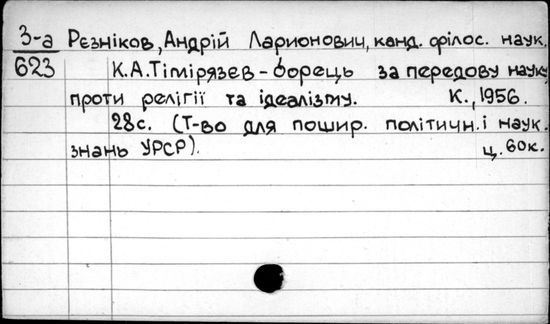 З-а Рєзніков, Андрій Ларионович, канд. філос. наук.
623 К.А.Тімірязєв - борець за передову науку
проти релігії та ідеалізму. К., 1956.
28с. (Т-во для пошир. політичн. і наук.
знань УРСР). ц. 60к.